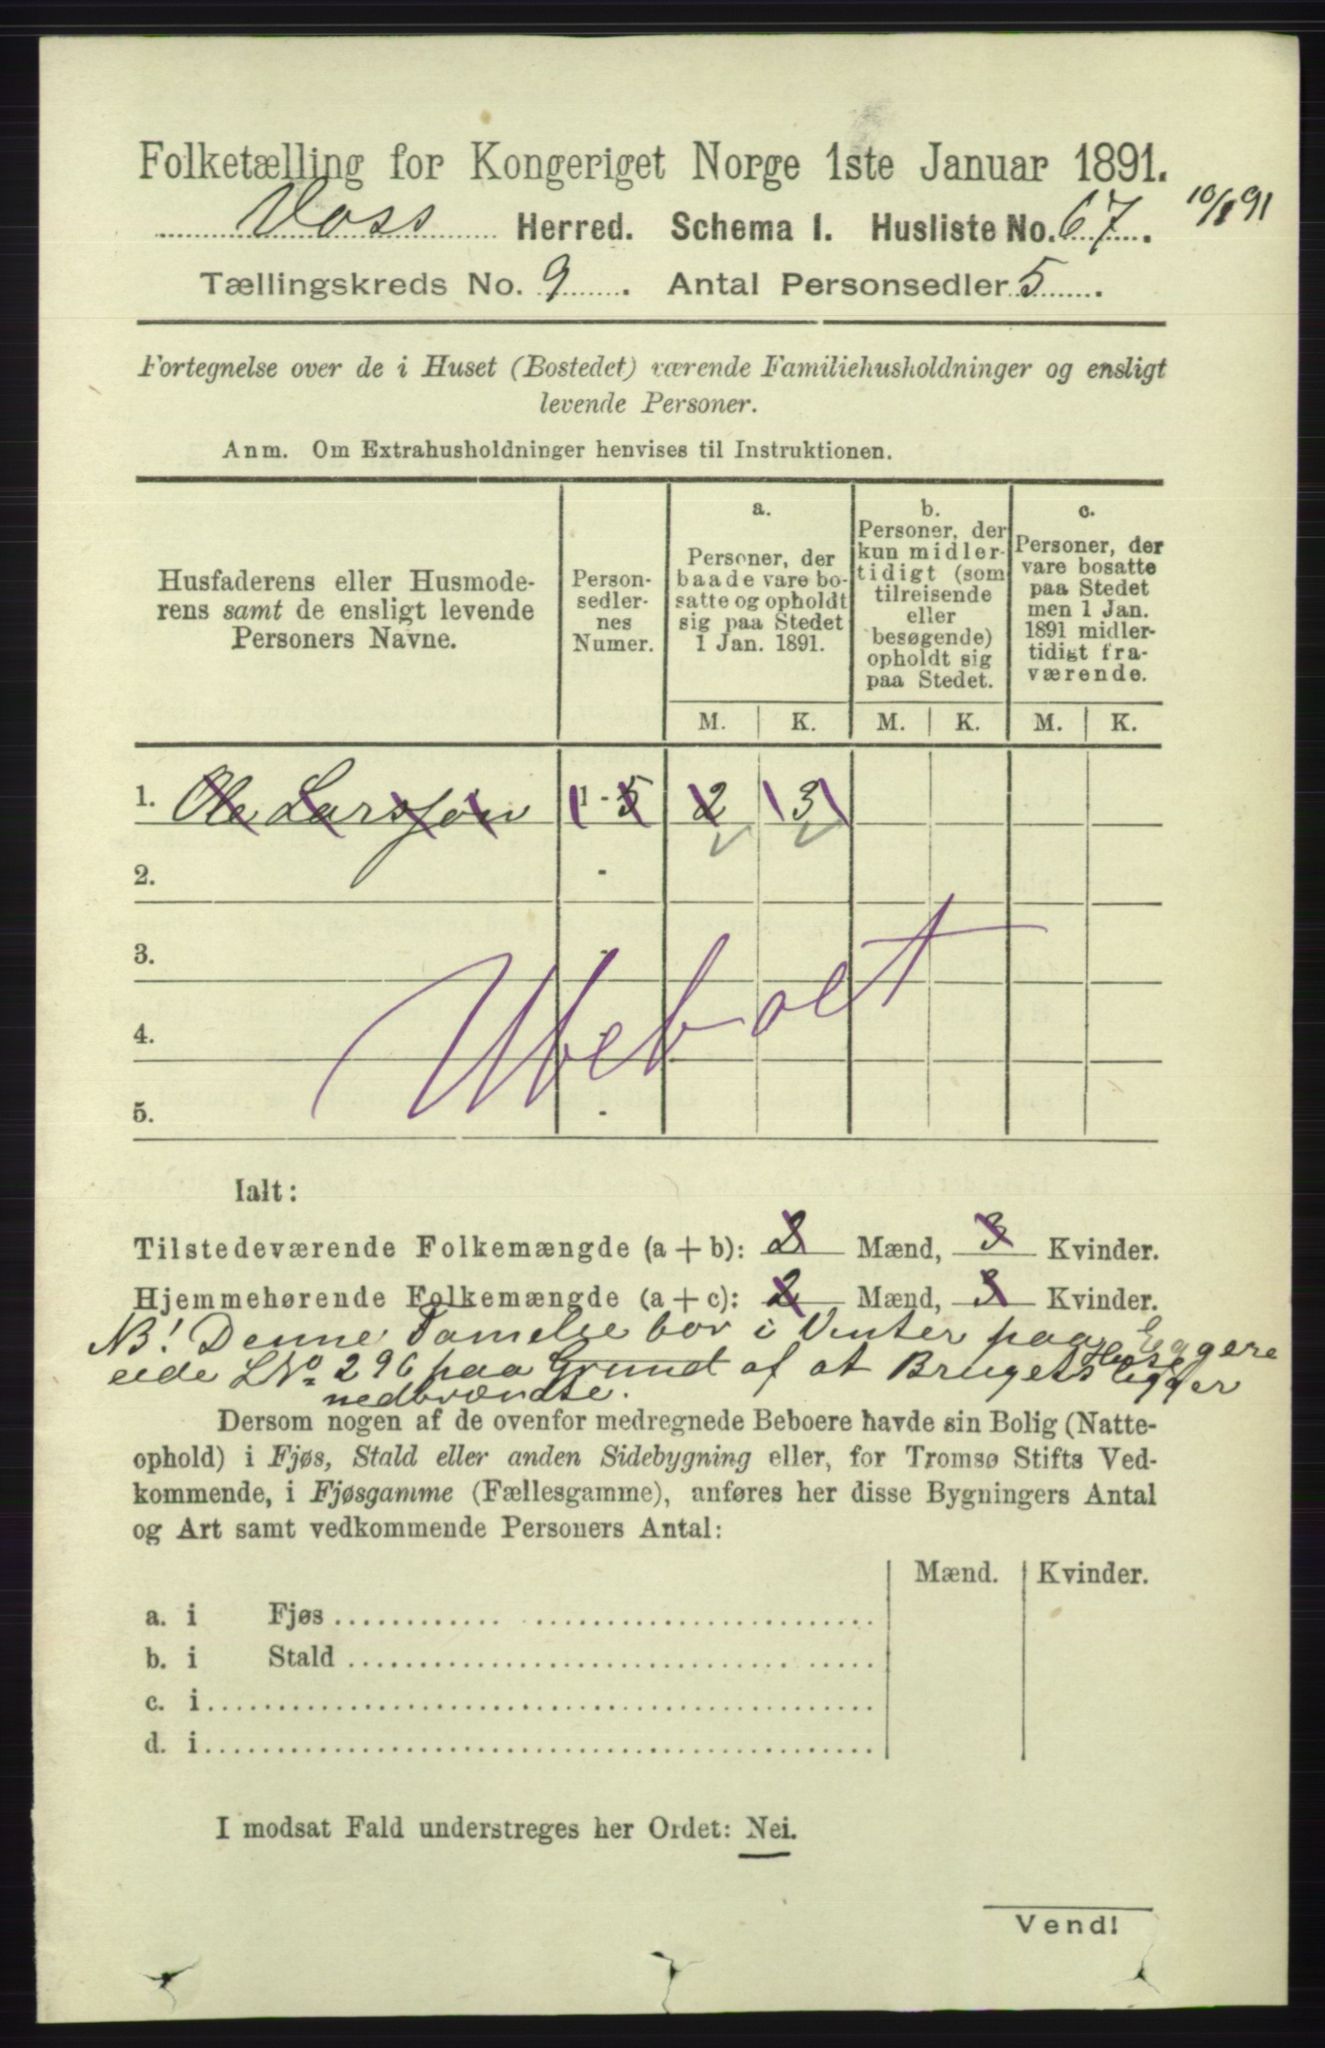 Folketælling for Kongeriget Norge 1ste Januar 1891.
Voss Herred. Schema I. Husliste No. 67. 10/1 91
Tællingskreds No. 9. Antal Personsedler 5.
Fortegnelse over de i Huset (Bostedet) værende Familiehusholdninger og ensligt
levende Personer.
Anm. Om Extrahusholdninger henvises til Instruktionen.
Husfaderens eller Husmode-
rens samt de ensligt levende
Personers Navne.
Person-
sedler-
nes
Numer.
a.
Personer, der
baade vare bo-
satte og opholdt
sig paa Stedet
1 Jan. 1891.
b.
Personer, der
kun midler-
tidigt (som
tilreisende
eller
besøgende)
opholdt sig
paa Stedet.
c.
Personer, der
vare bosatte
paa Stedet
men 1 Jan.
1891 midler-
tidigt fra-
værende.
M. K. M. K. M. K.
1. Ole Larssøn 1 - 5 2 3
2. -
3. -
4.
5. -
Ubeboet
Ialt:
Tilstedeværende Folkemængde (a + b): 2 Mænd, 3 Kvinder.
Hjemmehørende Folkemængde (a + c): 2 Mænd, 3 Kvinder.
NB! Denne Familse bor i Vinter paa
eide LNo 296 paa Grund af at Brugets Huse ligger
nedbrændte.
Dersom nogen af de ovenfor medregnede Beboere havde sin Bolig (Natte-
ophold) i Fjøs, Stald eller anden Sidebygning eller, for Tromsø Stifts Ved-
kommende, i Fjøsgamme (Fællesgamme), anføres her disse Bygningers Antal
og Art samt vedkommende Personers Antal:
Mænd. Kvinder.
a. i Fjøs
b. i Stald
c. i
d. i
I modsat Fald understreges her Ordet: Nei.
Vend!